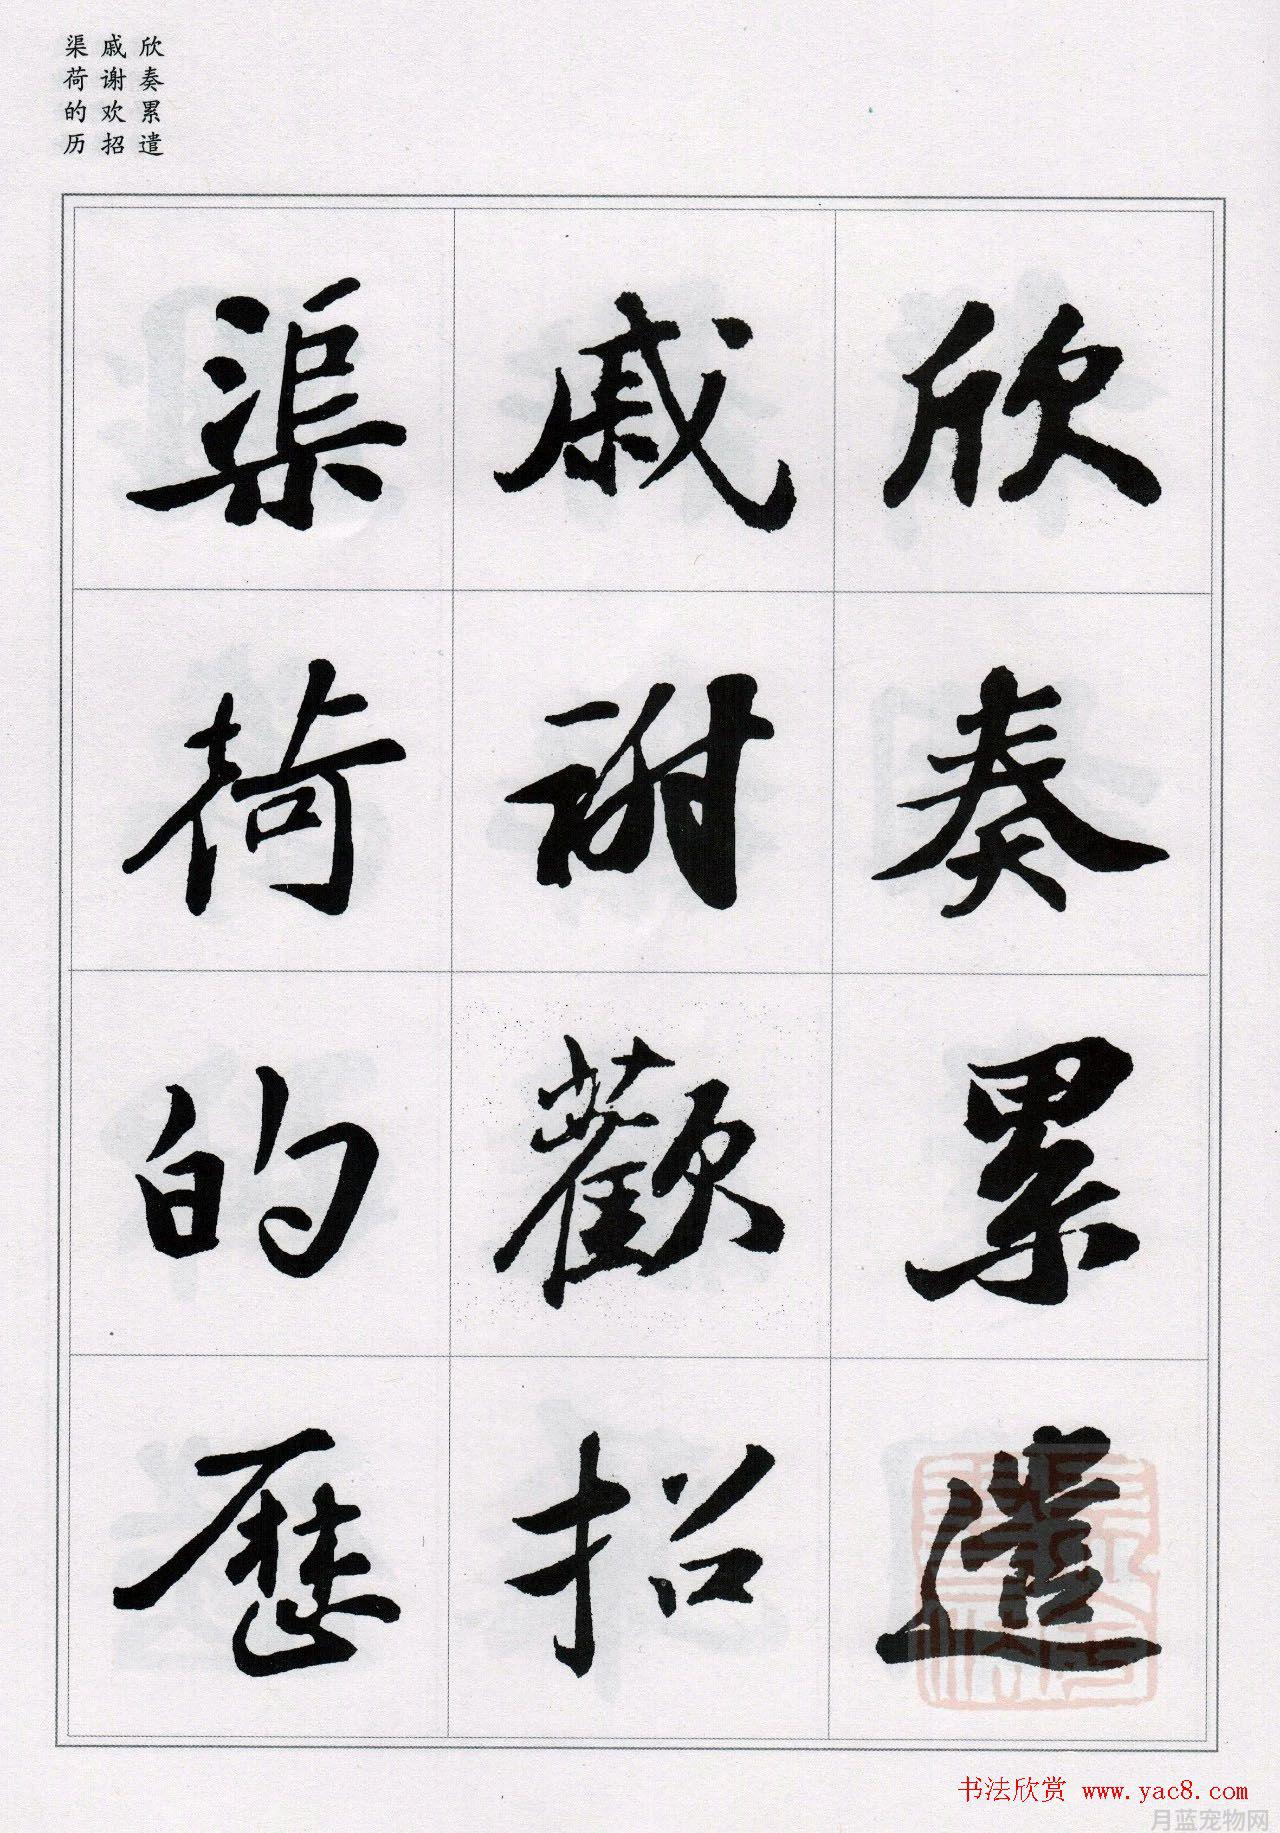 欣奏累遣
戚谢欢招
渠荷的历
欣奏累遣
戚謝歡招
渠荷的歷
书法欣赏 www.yac8.com
月蓝宠物网